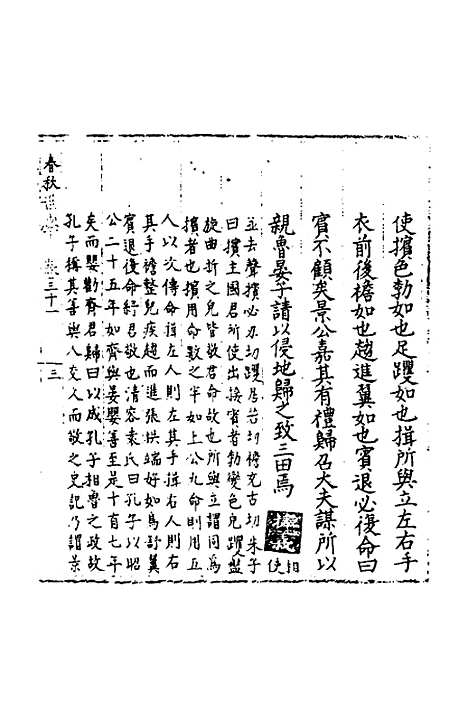 使擯色勃如也足躩如也揖所與立左右手
衣前後襜如也趨進翼如也賓退必復命曰
賓不顧矣景公嘉其有禮歸召大夫謀所以
親魯晏子請以侵地歸之致三田焉
相使
並去聲擯必刃切躩居若切襜充古切朱子
曰擯主國君所使出接賓者勃變色皃躩盤
旋曲折之皃皆敬君命故也所與立謂同爲
擯者也擯用命數之半如上公九命則用五
人以次傳命揖左人則左其手揖右人則右
其手襜整皃疾趨而進張拱端好如鳥舒翼
賓退復命紓君敬也清容袁氏曰孔子以昭
公二十五年如齊與晏嬰善至是十有七年
矣而嬰勸齊君歸田以成孔子相魯之政故
孔子稱其善與人交久而敬之史記乃謂景
春秋 卷三十一
三